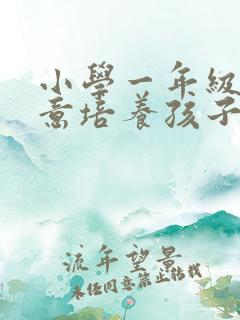 小學一年級
意培養孩子
流年望景
未任同意禁止转载